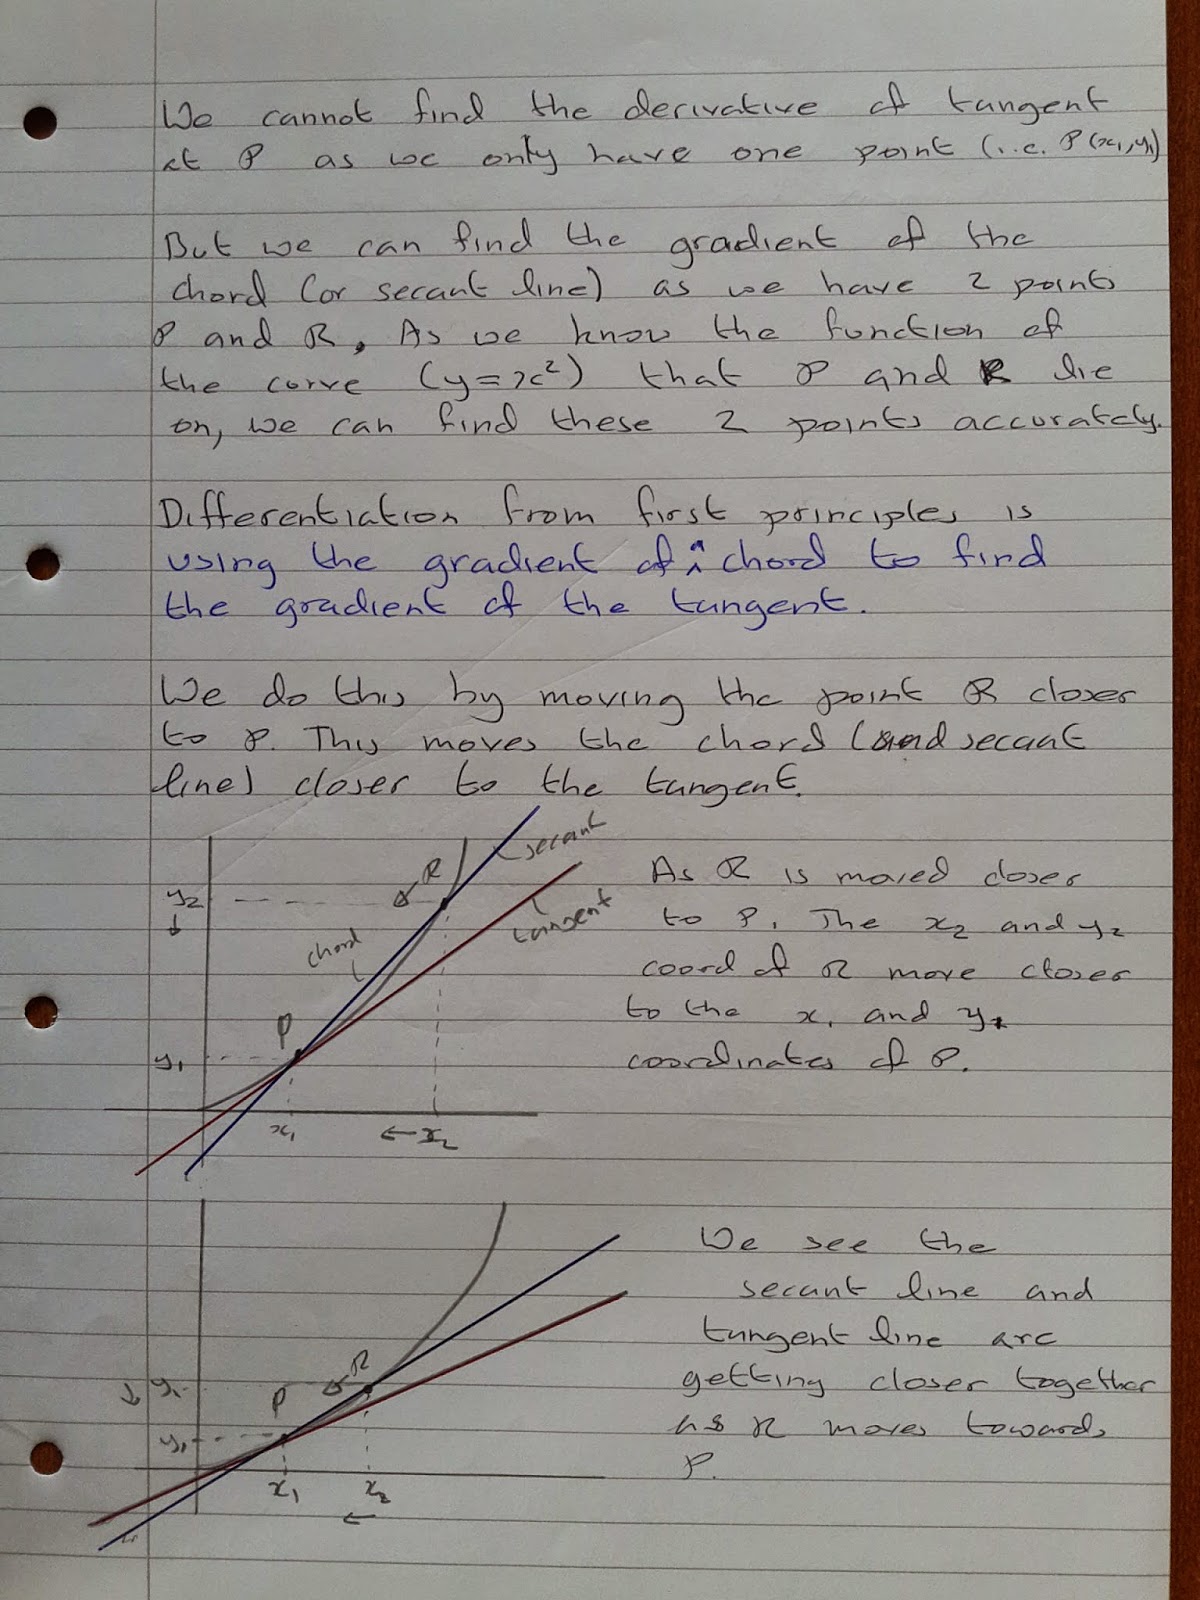 We cannot find the derivative of tangent
at P as we only have one point (i.e. P(x₁,y₁)
But we can find the gradient of the
chord (or secant line) as we have 2 points
P and R. As we know the function of
the curve (y=x²) that P and R lie
on, we can find these 2 points accurately.
Differentiation from first principles is
using the gradient of a chord to find
the gradient of the tangent.
We do this by moving the point R closer
to P. This moves the chord (and secant
line) closer to the tangent.
secant
R
y₂
tangent
chord
P
y₁
x₁ ←x₂
As R is moved closer
to P. The x₂ and y₂
coord of R move closer
to the x₁ and y₁
coordinates of P.
R
y₁
P
y₁
x₁ x₂
←
We see the
secant line and
tangent line are
getting closer together
as R moves towards
P.